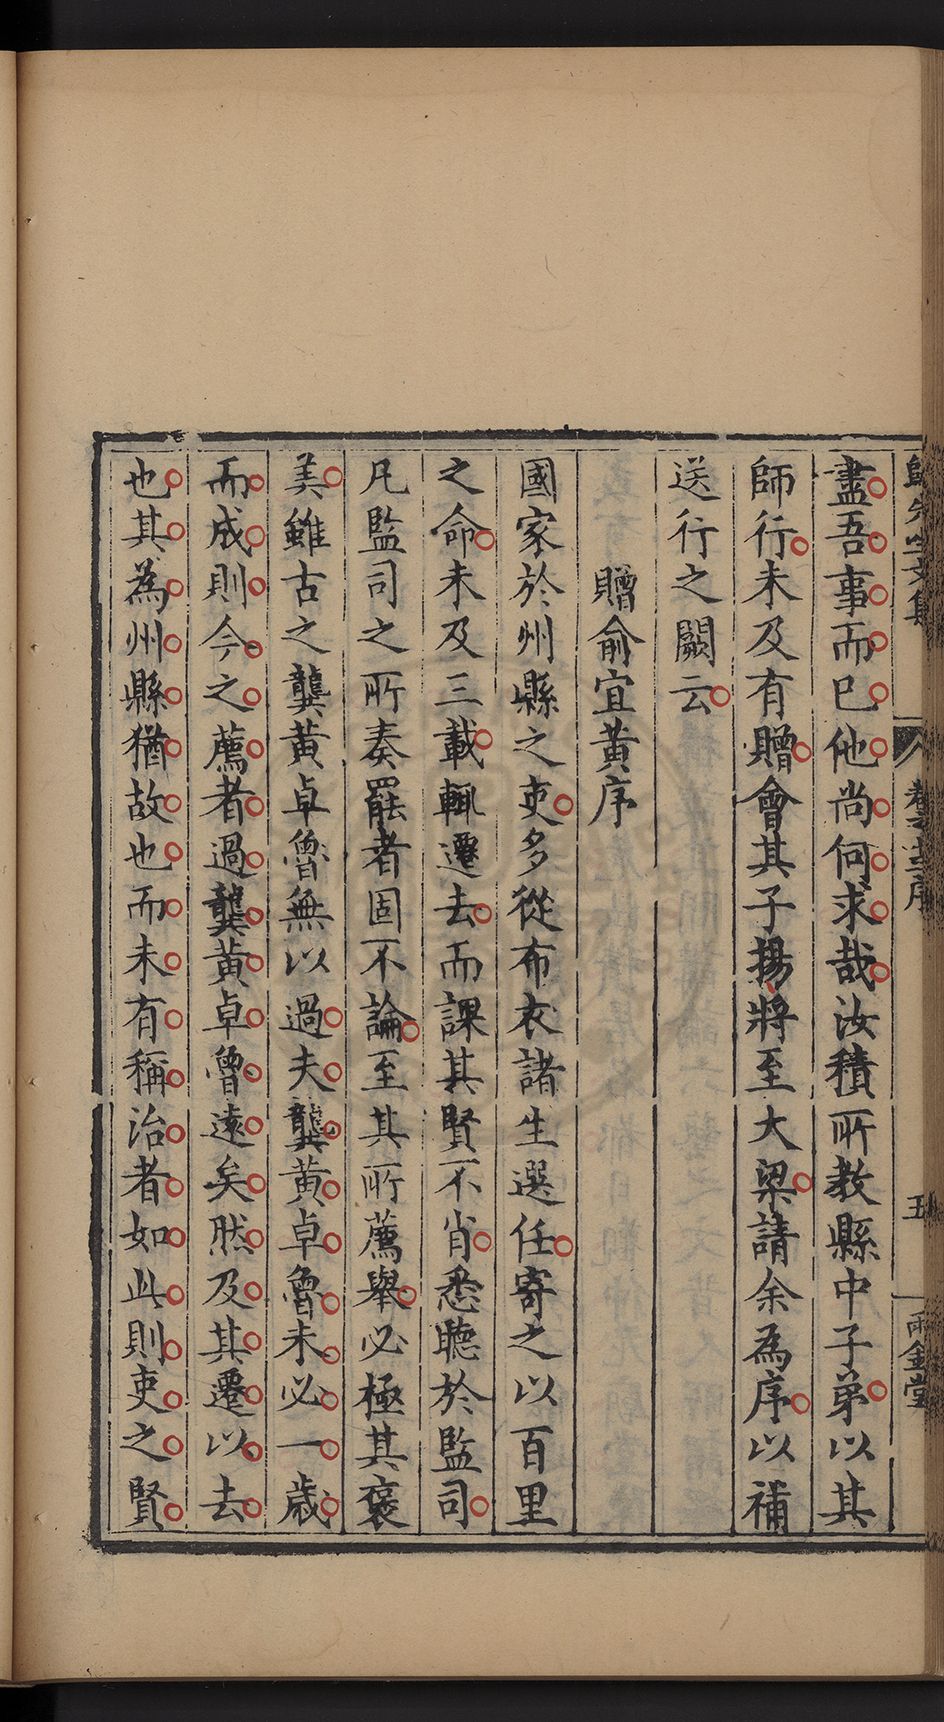 盡吾事而已他尚何求哉汝積所教縣中子弟以其
師行未及有贈會其子揚將至大梁請余為序以補
送行之闕云
贈俞宜黃序
國家於州縣之吏多從布衣諸生選任寄之以百里
之命未及三載輒遷去而課其賢不肖悉聽於監司
凡監司之所奏罷者固不論至其所薦舉必極其褒
美雖古之龔黃卓魯無以過夫龔黃卓魯未必一歲
而成則今之薦者過龔黃卓魯遠矣然及其遷以去
也其為州縣猶故也而未有稱治者如此則吏之賢